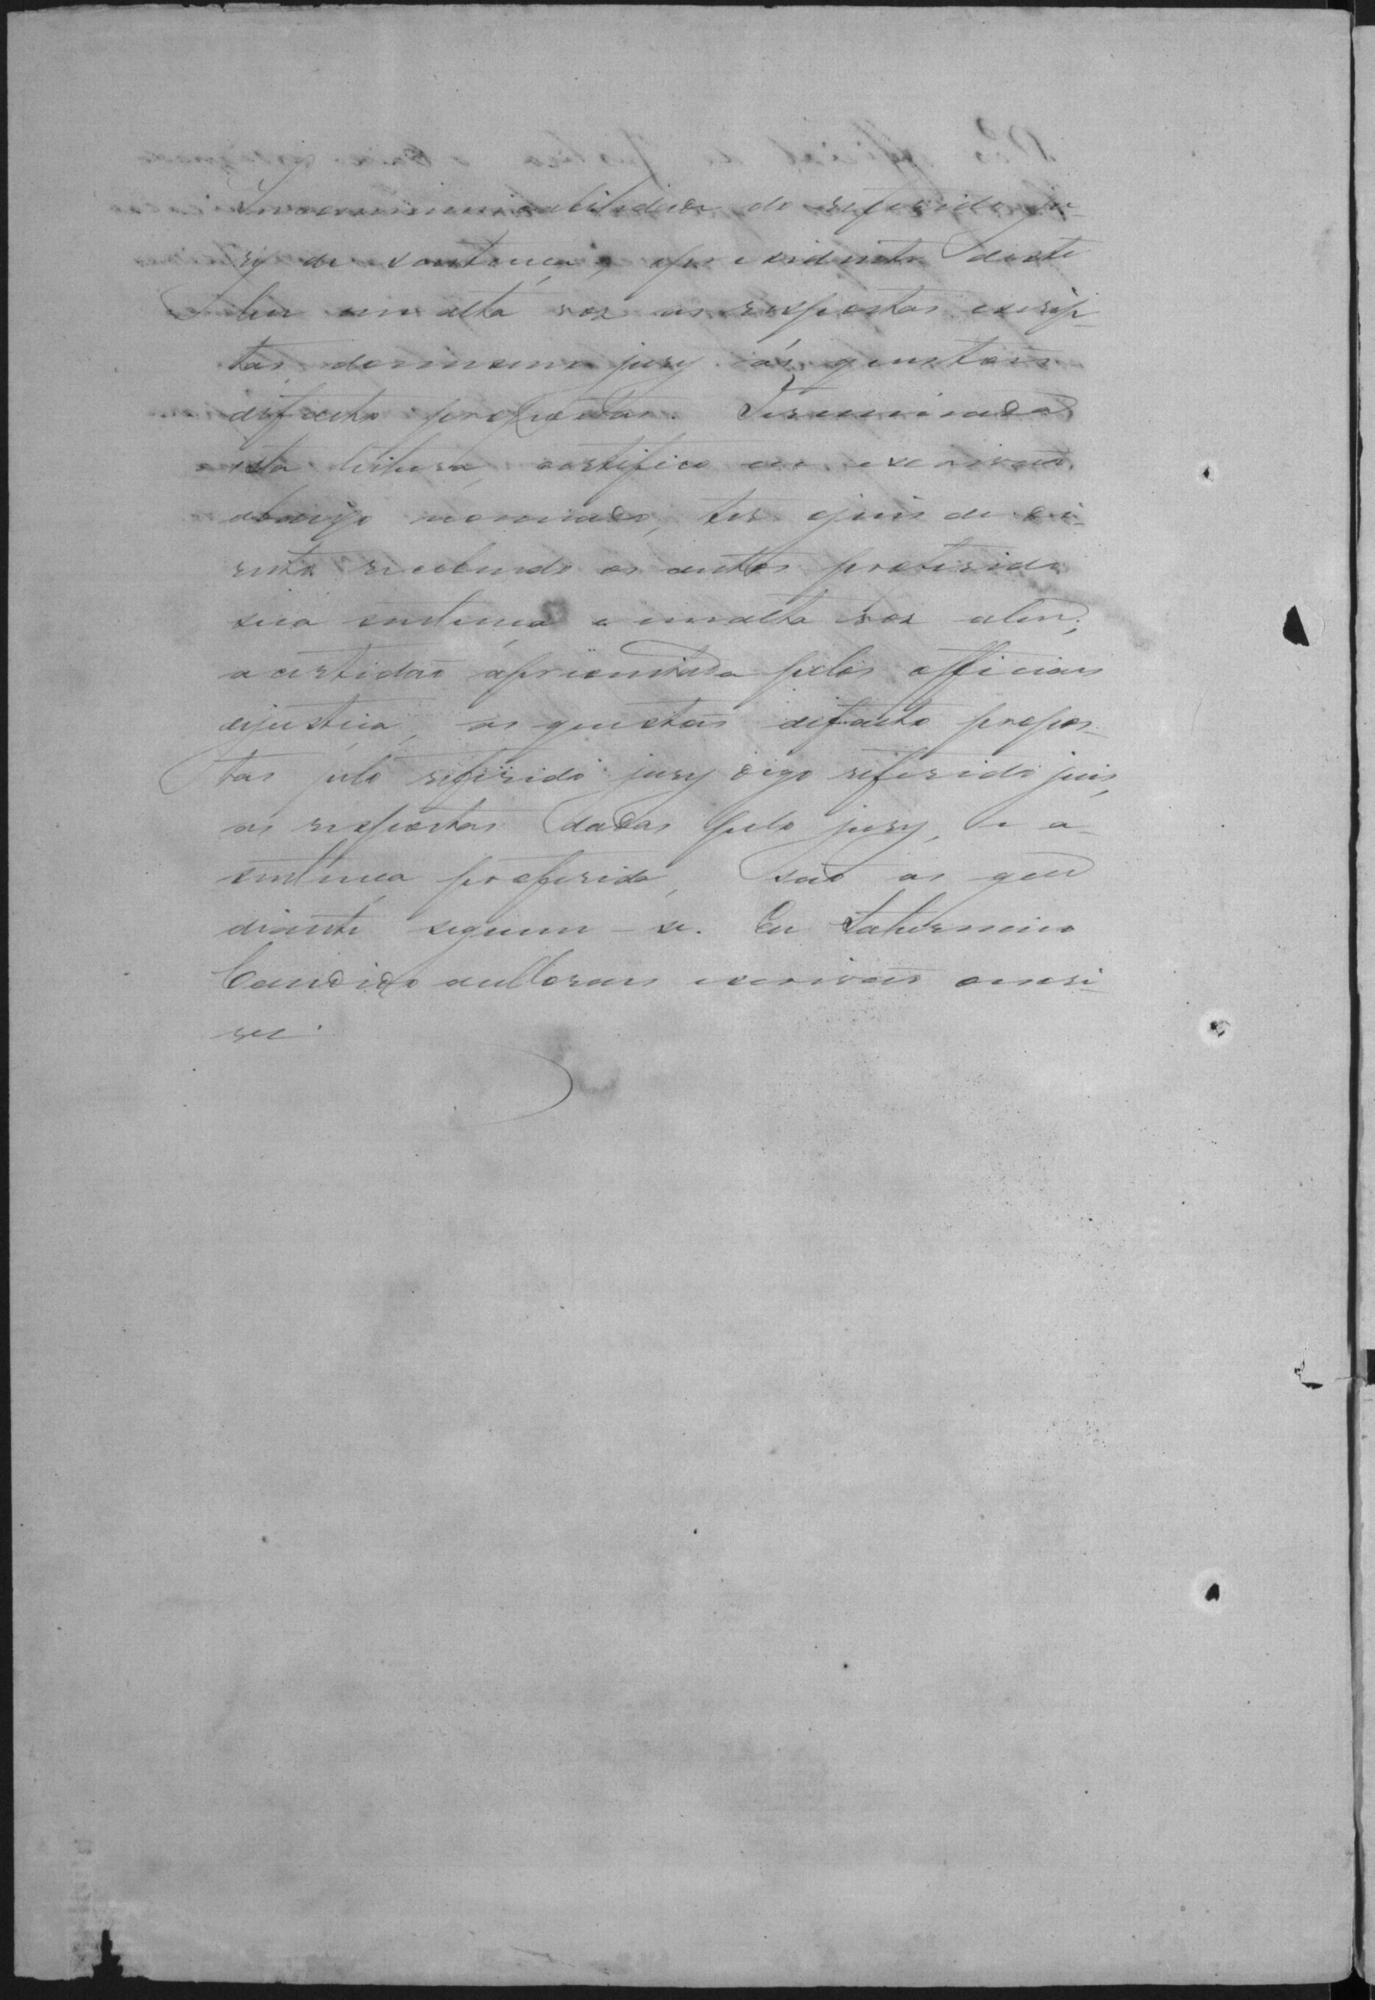 Incommunicabilidade do referido ju-
ry de sentença, o presidente deste
leu em alta voz as respostas escrip-
tas do mesmo jury ás questões
defacto propostas. Terminada
esta leitura, certifico eu escrivão
abaixo nomeado, ter o juis de di-
reito recebendo os autos proferido
sua sentença e em alta voz a leu;
a certidão aprecentada pelos officiaes
dejustiça, as questões defacto propos-
tas pelo referido jury digo referido juis,
as respostas dadas pelo jury, e a
sentença proferida, são as que
diante seguem-se. Eu Saturnino
Candido escrivão o escri-
vi.